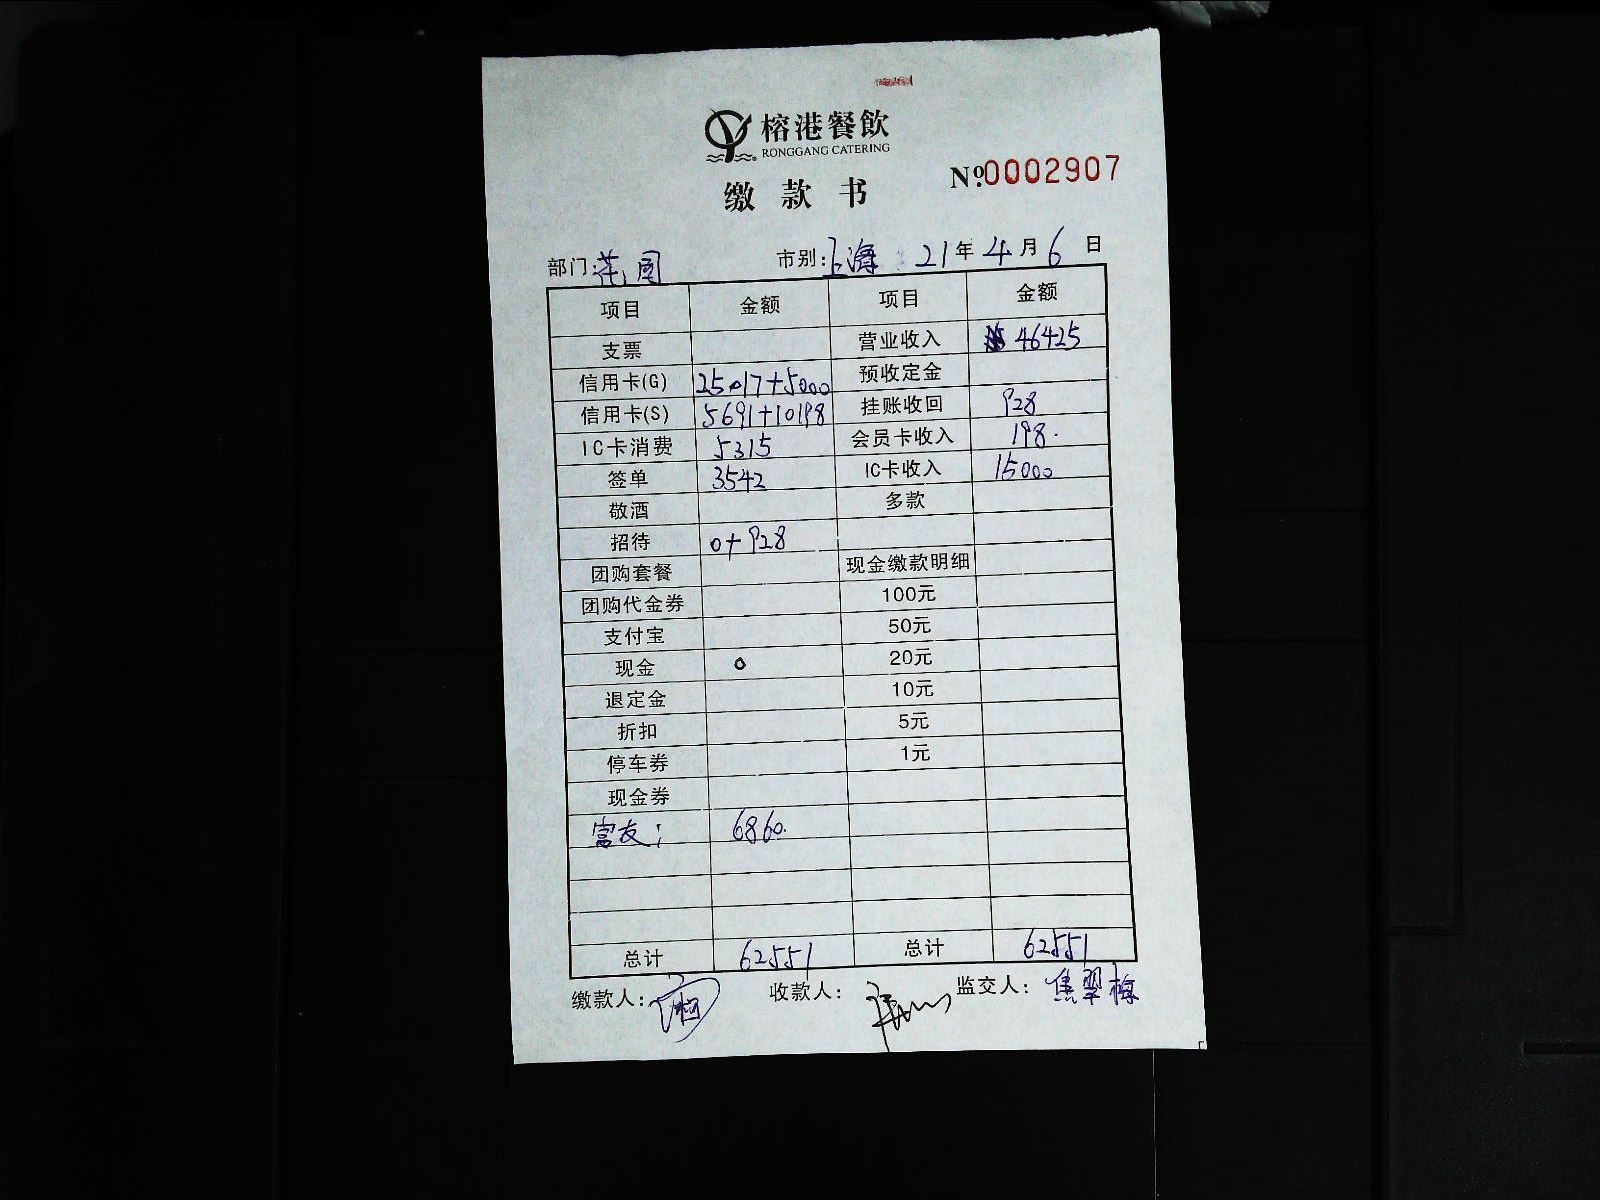 榕港餐飲
RONGGANG CATERING
缴款书
Nº0002907
部门: 花园 市别: 上海 21年4月6日
项目 金额 项目 金额
支票 营业收入 46425
信用卡(G) 25017+5000 预收定金
信用卡(S) 5691+10198 挂账收回 928
IC卡消费 5315 会员卡收入 198.
签单 3542 IC卡收入 15000
敬酒 多款
招待 0+928
团购套餐 现金缴款明细
团购代金券 100元
支付宝 50元
现金 0 20元
退定金 10元
折扣 5元
停车券 1元
现金券
富友: 6860.
总计 62551 总计 62551
缴款人: 收款人: 监交人: 焦翠梅